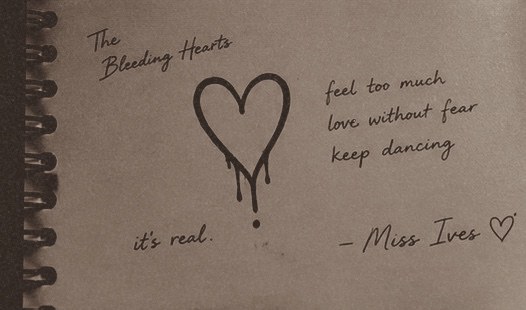 The
Bleeding Hearts
feel too much
love without fear
keep dancing
it's real.
– Miss Ives ♡